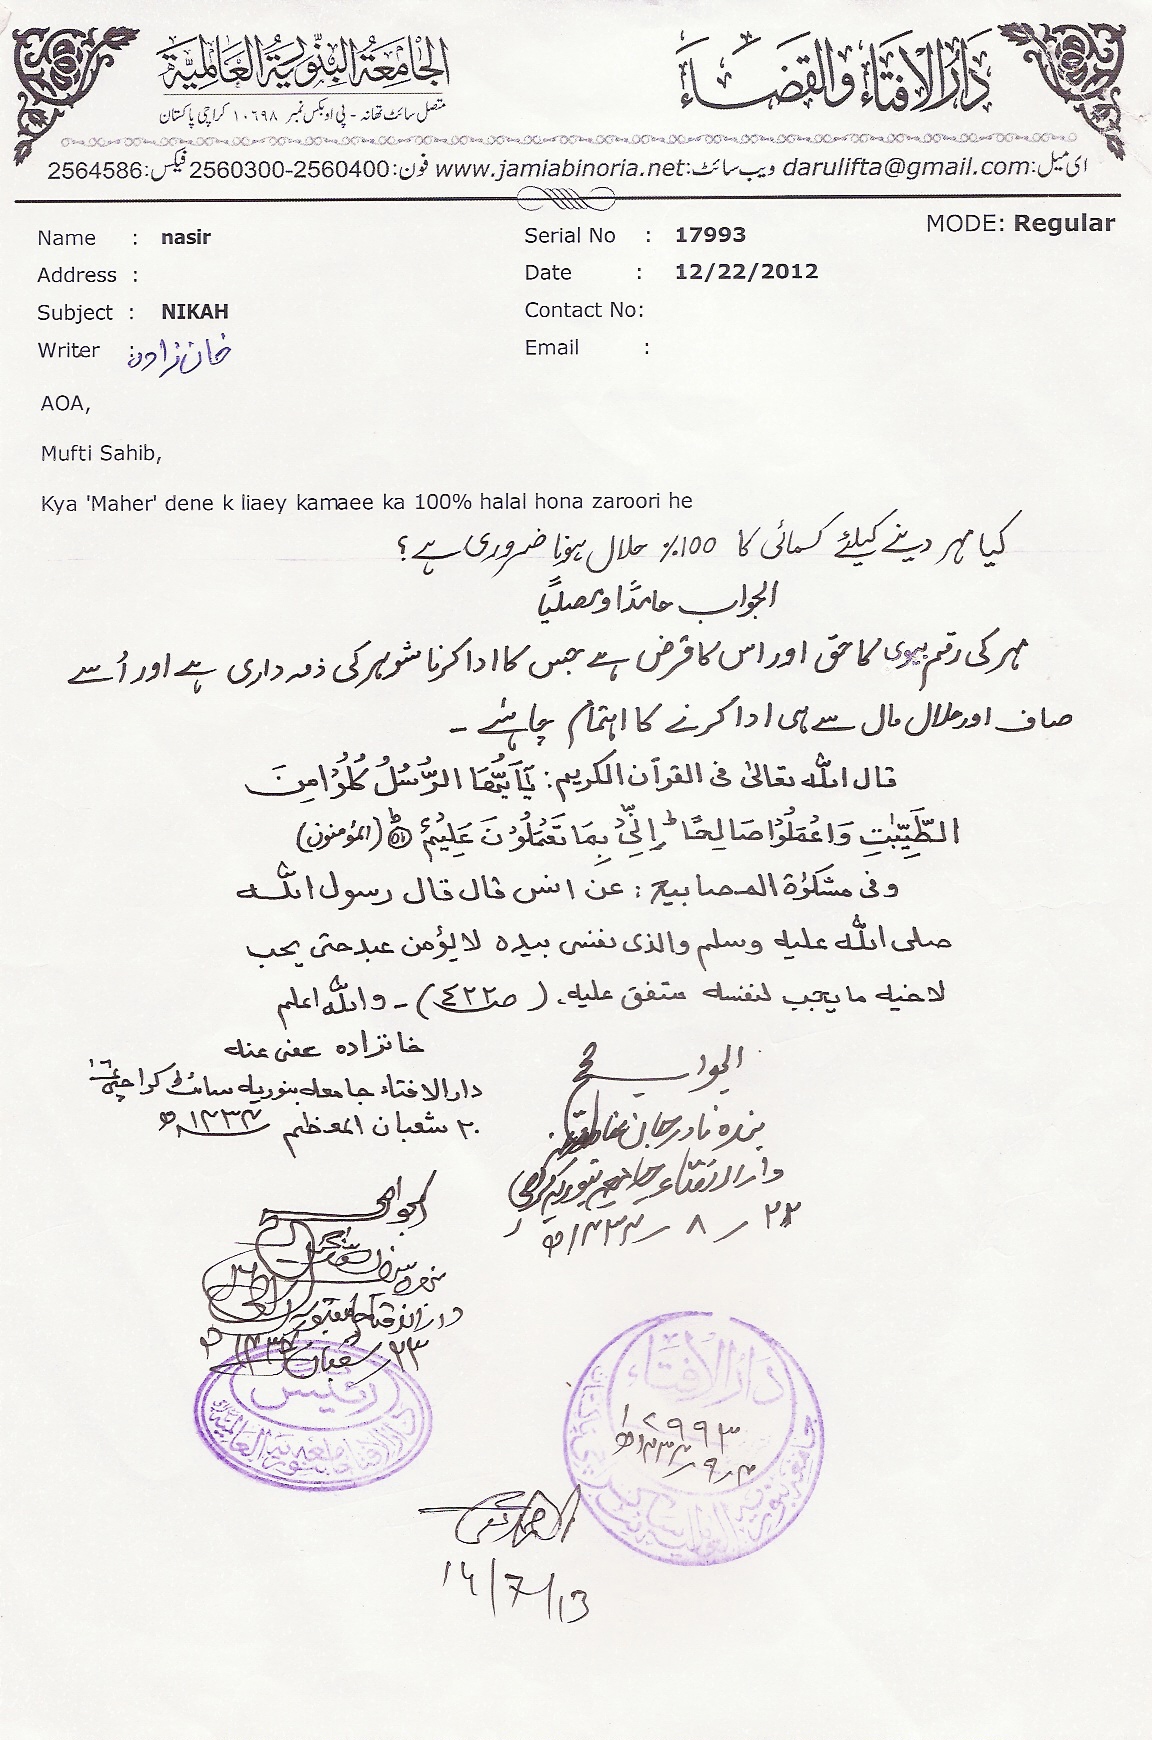 دَارُالاِفتَاء والقضَاء
الجَامعَةُ البِنّوريَّة العَالميَّة
متصل سائٹ تھانہ - پی او بکس نمبر ۱۰۶۹۸ کراچی پاکستان
ای میل:darulifta@gmail.com ویب سائٹ:www.jamiabinoria.net فون:2560300-2560400 فیکس:2564586
MODE: Regular
Name : nasir
Serial No : 17993
Address :
Date : 12/22/2012
Subject : NIKAH
Contact No:
Writer : خان زادہ
Email :
AOA,
Mufti Sahib,
Kya 'Maher' dene k liaey kamaee ka 100% halal hona zaroori he
کیا مہر دینے کیلئے کمائی کا ۱۰۰٪ حلال ہونا ضروری ہے؟
الجواب حامدًا ومصلیًا
مہر کی رقم بیوی کا حق اور اس کا قرض ہے جس کا ادا کرنا شوہر کی ذمہ داری ہے اور اُسے
صاف اور حلال مال سے ہی ادا کرنے کا اہتمام چاہئے ۔
قال اللہ تعالیٰ فی القرآن الکریم: یٰۤاَیُّهَا الرُّسُلُ كُلُوْا مِنَ
الطَّیِّبٰتِ وَاعْمَلُوْا صَالِحًا ؕ اِنِّیْ بِمَا تَعْمَلُوْنَ عَلِیْمٌ ۵۱ (المؤمنون)
وفی مشکوٰۃ المصابیح: عن انس قال قال رسول اللہ
صلی اللہ علیہ وسلم والذی نفسی بیدہ لا یؤمن عبد حتی یحب
لاخیہ ما یحب لنفسہ متفق علیہ. (صـ٤٢٢) ۔ واللہ اعلم
خانزادہ عفی عنہ
دارالافتاء جامعہ بنوریہ سائٹ کراچی ۱۶
۲۰ شعبان المعظم ۱۴۳۴ھ
الجواب صحیح
بندہ نادر جان
دارالافتاء جامعہ بنوریہ کراچی
۲۲ / ۸ / ۱۴۳۴ھ
الجواب صحیح
دارالافتاء جامعہ بنوریہ
۲۳ شعبان ۱۴۳۴ھ
رئیس
دارالافتاء جامعہ بنوریہ العالمیہ
دَارُالاِفتَاء
۱۷۹۹۳
۱۴۳۴/۹/۴ھ
14/7/13